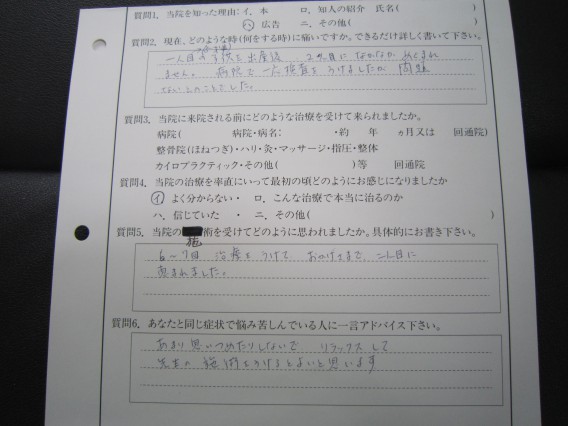 質問1. 当院を知った理由:イ. 本　ロ. 知人の紹介　氏名(　)
ハ. 広告　ニ. その他(　)
質問2. 現在、どのような時(何をする時)に痛いですか。できるだけ詳しく書いて下さい。
一人目の子供を出産後、2人目になかなかめぐまれ
ません。病院で一人検査をうけましたが、問題
ないとのことでした。
質問3. 当院に来院される前にどのような治療を受けて来られましたか。
病院(　病院・病名:　・約　年　ヵ月又は　回通院)
整骨院(ほねつぎ)・ハリ・灸・マッサージ・指圧・整体
カイロプラクティック・その他(　)等　回通院
質問4. 当院の治療を率直にいって最初の頃どのようにお感じになりましたか
イ. よく分からない・　ロ. こんな治療で本当に治るのか
ハ. 信じていた　・　ニ. その他(　)
質問5. 当院の施術を受けてどのように思われましたか。具体的にお書き下さい。
6〜7回 治療をうけて、おかげさまで、二人目に
恵まれました。
質問6. あなたと同じ症状で悩み苦しんでいる人に一言アドバイス下さい。
あまり思いつめたりしないで リラックスして
先生の施術をうけるとよいと思います